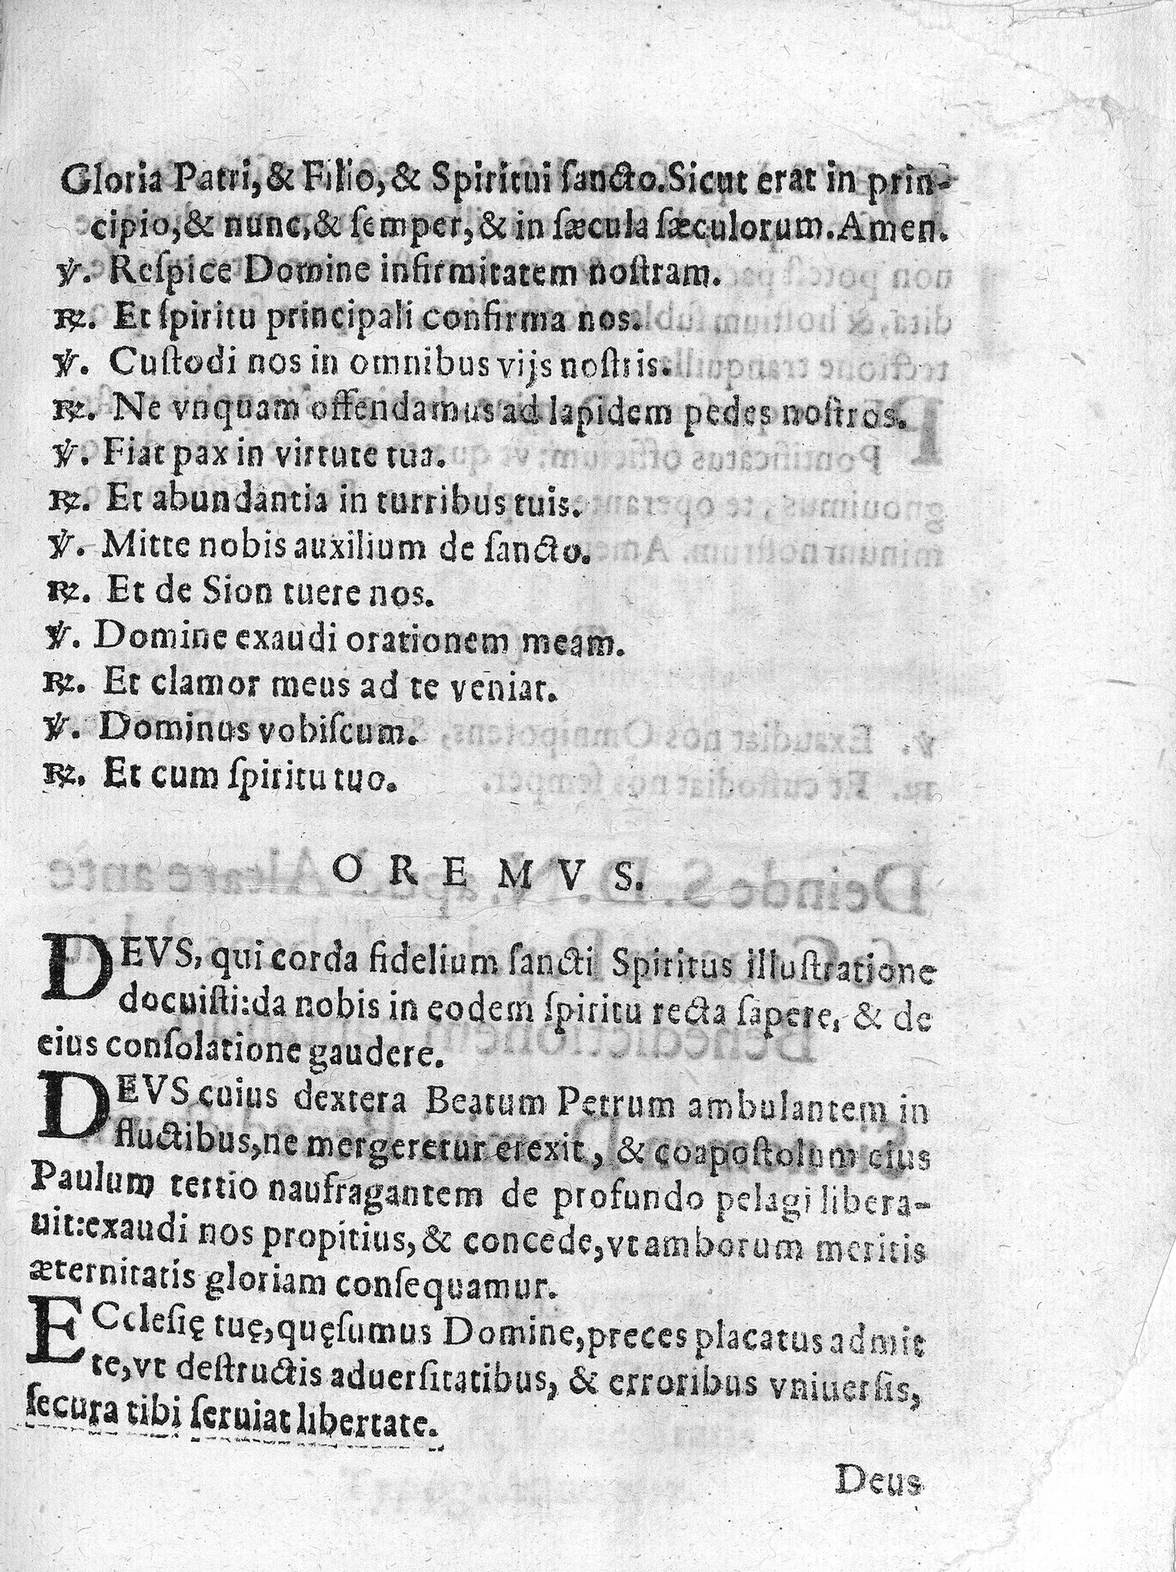 Gloria Patri, & Filio, & Spiritui ſancto. Sicut erat in prin-
cipio, & nunc, & ſemper, & in ſæcula ſæculorum. Amen.
℣. Reſpice Domine infirmitatem noſtram.
℟. Et ſpiritu principali confirma nos.
℣. Cuſtodi nos in omnibus vijs noſtris.
℟. Ne vnquam offendamus ad lapidem pedes noſtros.
℣. Fiat pax in virtute tua.
℟. Et abundantia in turribus tuis.
℣. Mitte nobis auxilium de ſancto.
℟. Et de Sion tuere nos.
℣. Domine exaudi orationem meam.
℟. Et clamor meus ad te veniat.
℣. Dominus vobiſcum.
℟. Et cum ſpiritu tuo.
OREMVS.
DEVS, qui corda fidelium ſancti Spiritus illuſtratione
docuiſti: da nobis in eodem ſpiritu recta ſapere, & de
eius conſolatione gaudere.
DEVS cuius dextera Beatum Petrum ambulantem in
fluctibus, ne mergeretur erexit, & coapoſtolum eius
Paulum tertio naufragantem de profundo pelagi libera-
uit: exaudi nos propitius, & concede, vt amborum meritis
æternitatis gloriam conſequamur.
ECcleſię tuę, quęſumus Domine, preces placatus admit
te, vt deſtructis aduerſitatibus, & erroribus vniuerſis,
ſecura tibi ſeruiat libertate.
Deus